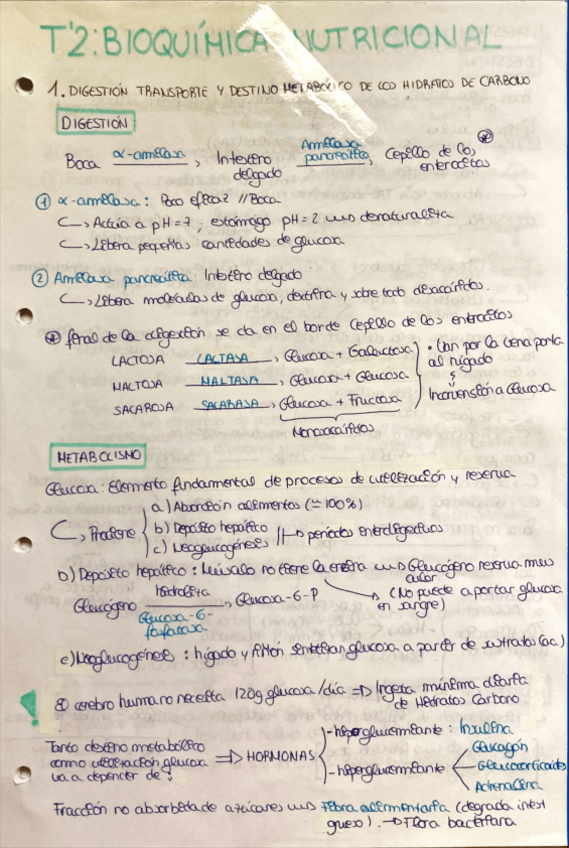 T'2: BIOQUÍMICA NUTRICIONAL
1. DIGESTIÓN TRANSPORTE Y DESTINO METABÓLICO DE LOS HIDRATOS DE CARBONO
DIGESTIÓN:
Boca α-amilasa, Intestino delgado Amilasa pancreática, Cepillo de los enterocitos *
① α-amilasa: Poco eficaz // Boca
↳ Actúa a pH=7; estómago pH=2 → desnaturaliza
↳ Libera pequeñas cantidades de glucosa
② Amilasa pancreática: Intestino delgado
↳ Libera moléculas de glucosa, dextrina y sobre todo disacáridos.
* final de la digestión se da en el borde cepillo de los enterocitos
LACTOSA LACTASA, Glucosa + Galactosa
MALTOSA MALTASA, Glucosa + Glucosa
SACAROSA SACARASA, Glucosa + Fructosa
Monosacáridos
• Van por la vena porta al hígado
Inconversión a Glucosa
METABOLISMO
Glucosa: Elemento fundamental de procesos de utilización y reserva
↳ Proviene
a) Absorción alimentos (≃100%)
b) Depósito hepático
c) Neoglucogénesis
periodos interdigestivos
b) Depósito hepático: Músculo no tiene la enzima → Glucógeno reserva muscular
(No puede aportar glucosa en sangre)
Glucógeno Hidroliza Glucosa-6-fosfatasa, Glucosa-6-P
c) Neoglucogénesis: hígado y riñón sintetizan glucosa a partir de sustratos (ac)
! El cerebro humano necesita 120g glucosa/día ⇒ Ingesta mínima diaria de Hidratos Carbono
Tanto destino metabólico como utilización glucosa va a depender de:
⇒ HORMONAS
- hipoglucemiante: Insulina
- hiperglucemiante
Glucagón
Glucocorticoides
Adrenalina
Fracción no absorbida de azúcares → Fibra alimentaria (degrada intest grueso). → Flora bacteriana